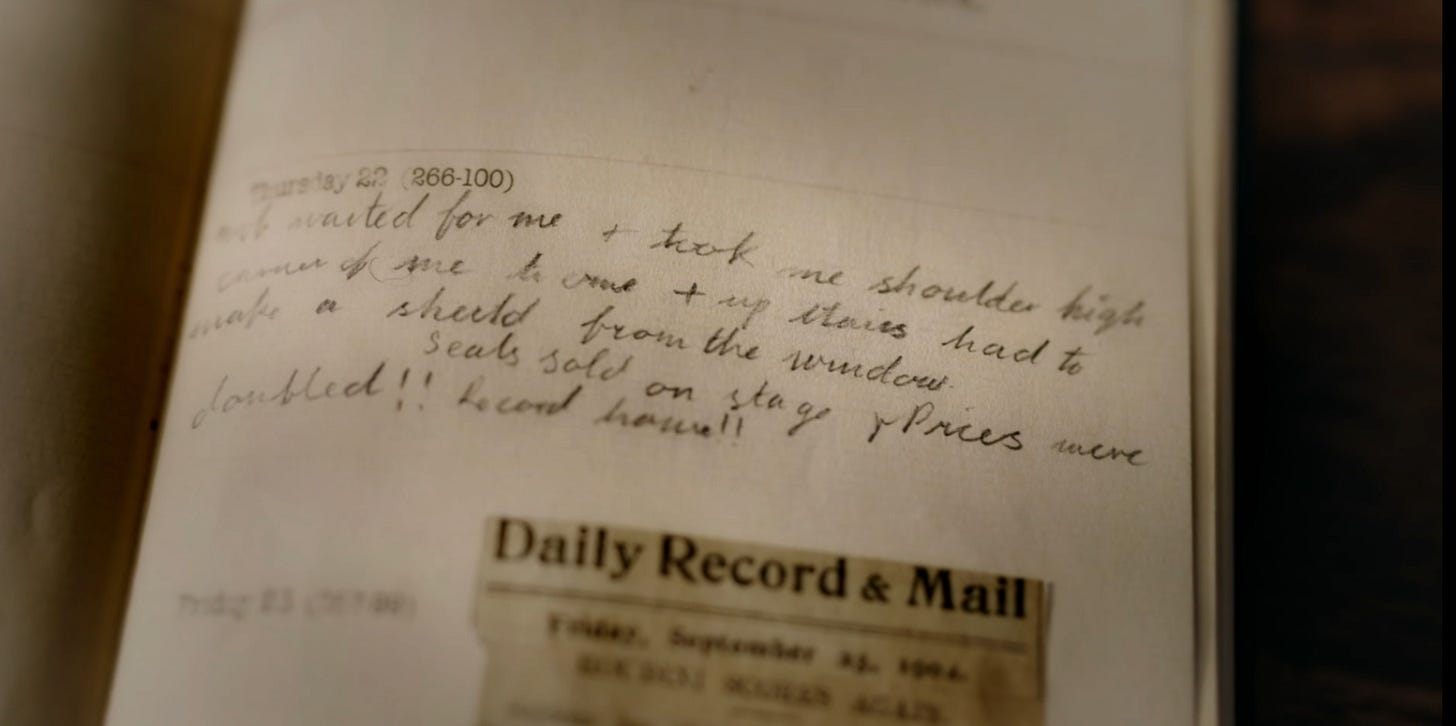 Thursday 22 (266-100)
mob waited for me + took me shoulder high
carried me home + up stairs had to
make a sheild from the window.
Seats sold on stage & Prices were
doubled!! Record house!!
Daily Record & Mail
Friday, September 23, 1904.
AGAIN.
Friday 23 (267-99)